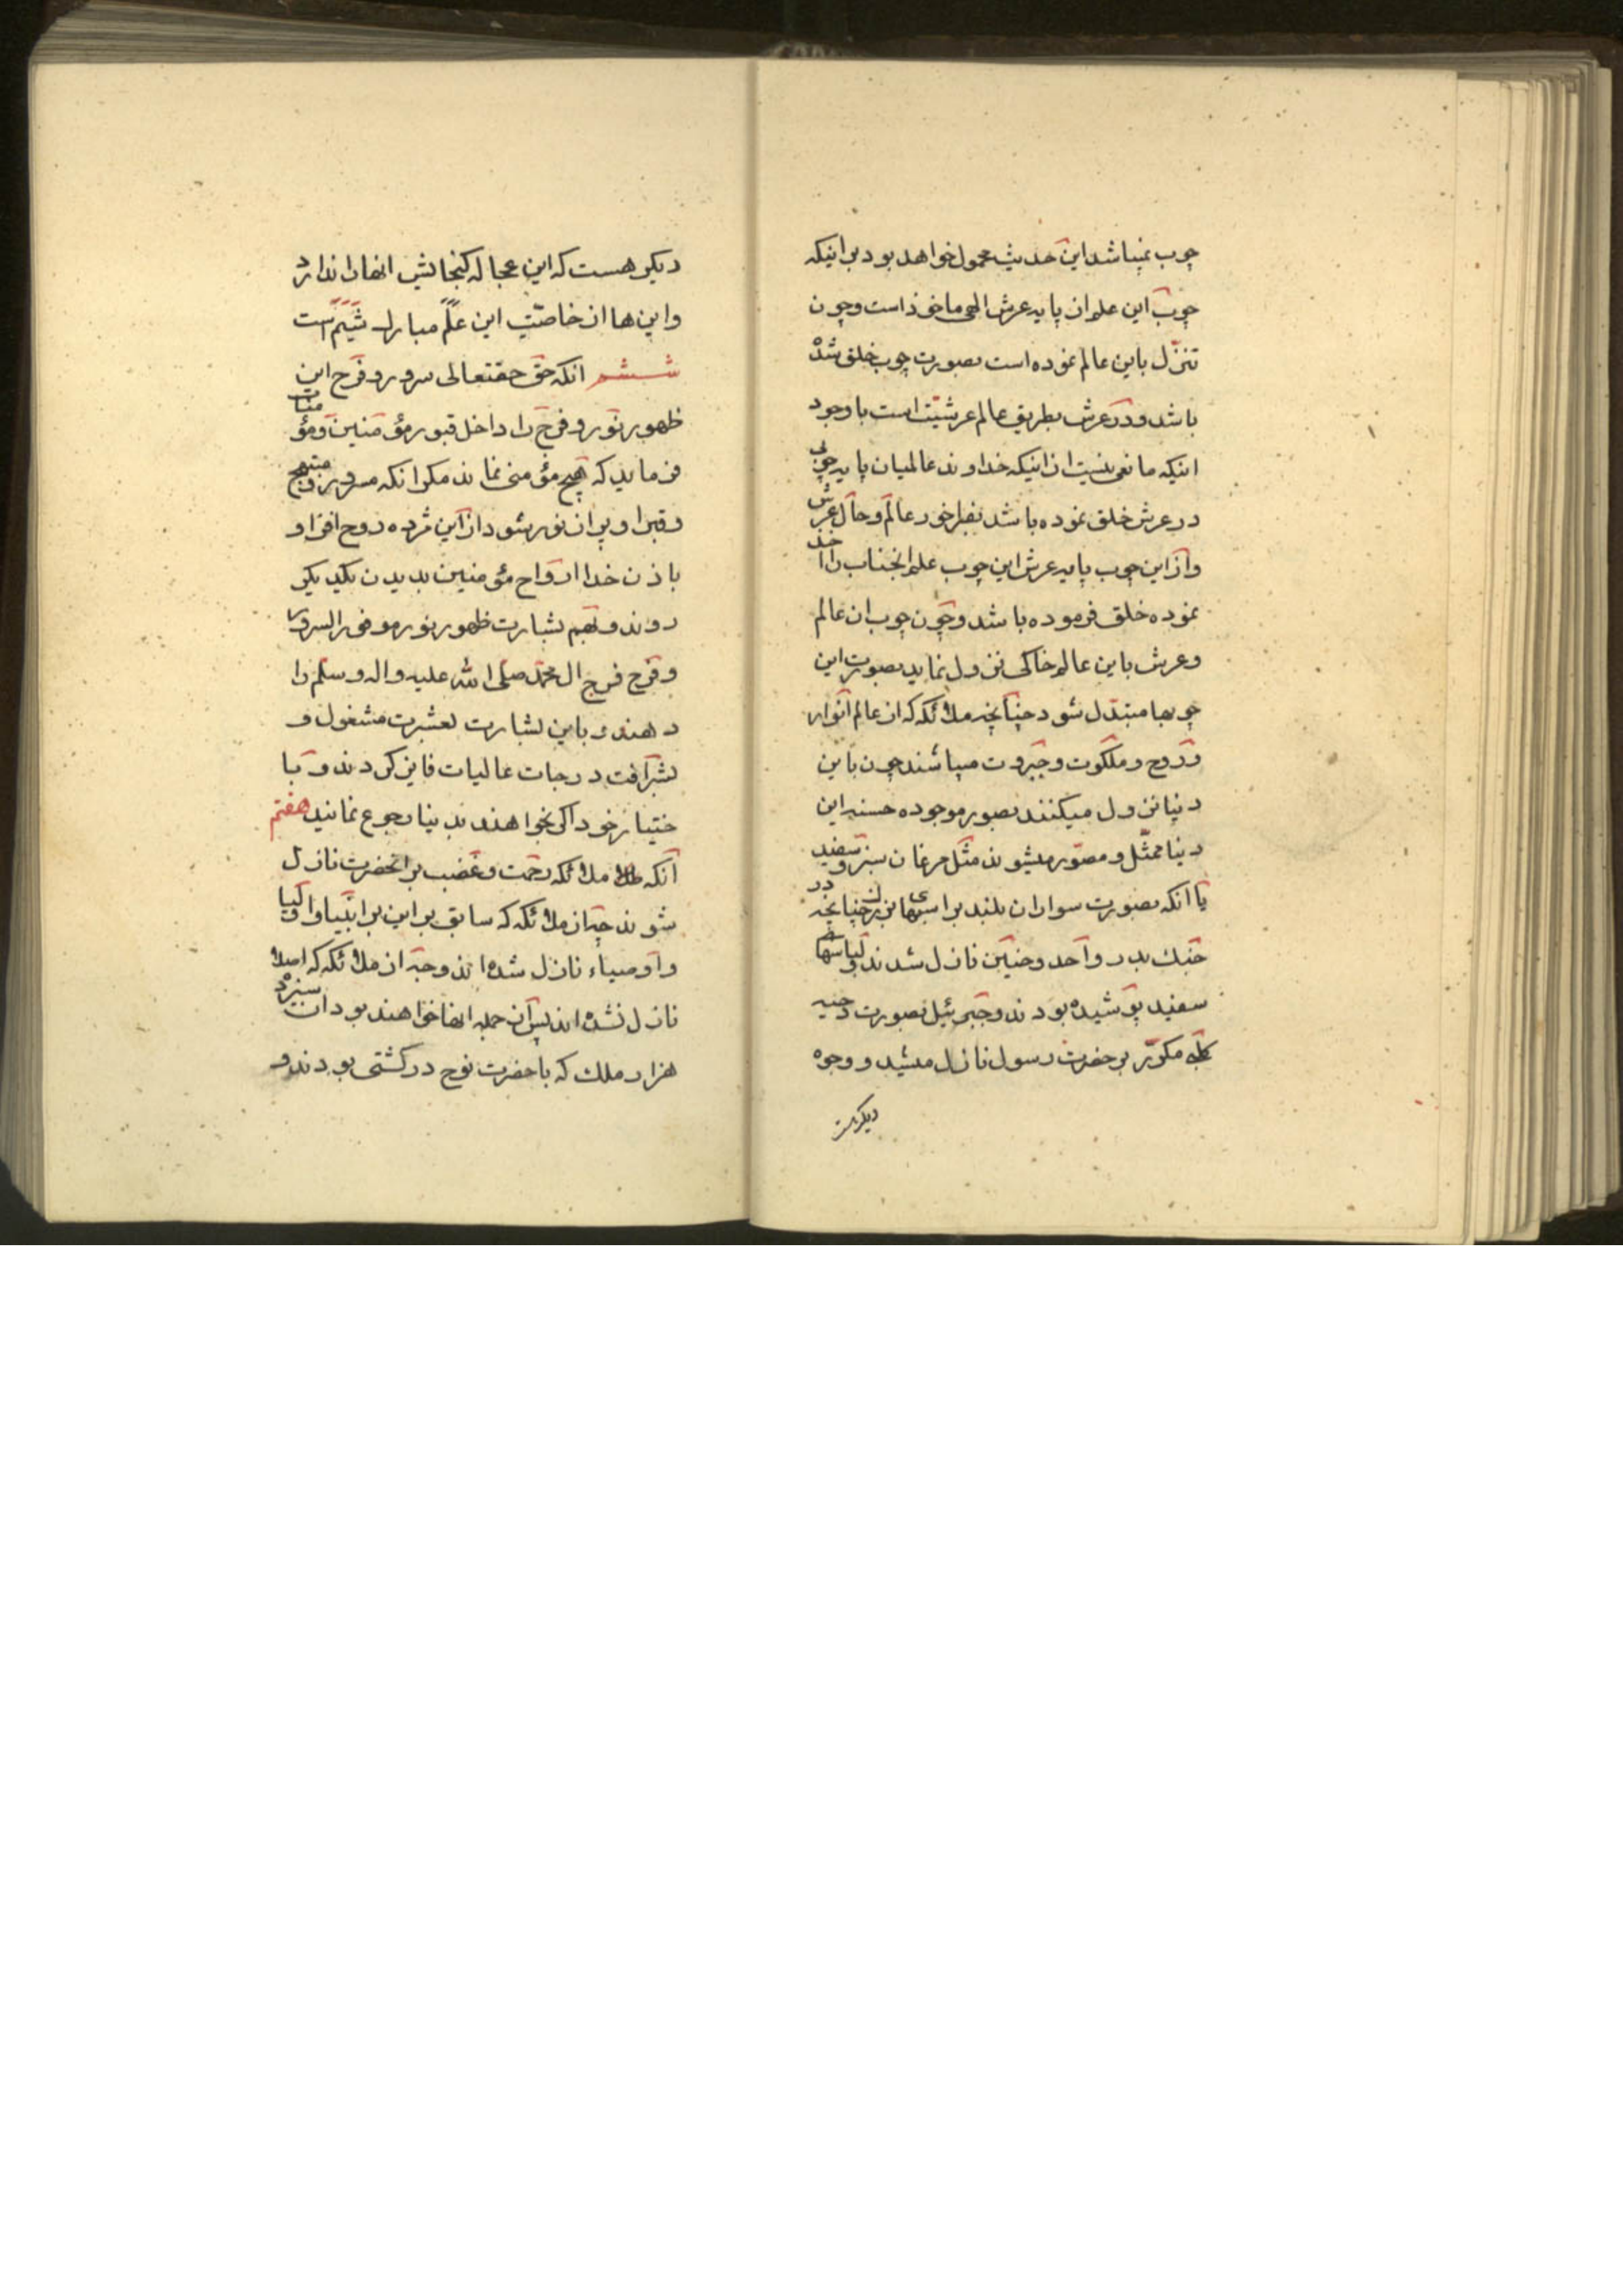 چوب نمیباشد این حدیث محمول خواهد بود بر اینکه
چوب این علم از پایه عرش الهی ماخوذ است و چون
تنزل باین عالم نموده است بصورت چوب خلق شده
باشد و در عرش بطریق عالم عرشیت است با وجود
اینکه مانعی نیست از اینکه خداوند عالمیان پایه چوبی
در عرش خلق نموده باشد بفراخور عالم و حال عرش
و از این چوب پایه عرش این چوب علم انجناب را اخذ
نموده خلق فرموده باشد و چون چوب ان عالم
و عرش باین عالم خاکی نزول نماید بصورت این
چوبها متبدل شود چنانچه ملائکه که از عالم انوار
و روح و ملکوت و جبروت میباشند چون باین
دنیا نزول میکنند بصور موجوده حسنه این
دنیا ممثل و مصور میشوند مثل مرغان سبز و سفید
یا انکه بصورت سواران بلند بر اسبهای چنانچه در
جنك بدر و احد و حنین نازل شدند و لباسهای
سفید پوشیده بودند و جبرئیل بصورت دحیه
کلبی مکرر بر حضرت رسول نازل میشد و وجوه
دیکر هست
دیکر هست که این عجاله کنجایش انها را ندارد
و این ها از خاصیت این علم مبارك شیم است
ششم انکه حق حقتعالی سرور و فرح این
ظهور نور و فرح را داخل قبور مؤمنین و مؤمنات
فرماید که هیچ مؤمنی نماند مکر انکه مسرور و مبتهج
و قبر او پر از نور شود از این مژده روح افزا و
باذن خدا ارواح مؤمنین بدیدن یکدیکر
روند و بهم بشارت ظهور نور موفور السرور
و فرح فرج ال محمد صلی الله علیه واله وسلم را
دهند و باین بشارت بعشرت مشغول و
بشرافت درجات عالیات فایز کردند و با
ختیار خود اکر بخواهند بدنیا رجوع نمایند هفتم
انکه ملائکه رحمت و غضب بر انحضرت نازل
شوند چه از ملائکه که سابق بر این بر انبیا و اولیا
و اوصیاء نازل شده اند و چه از ملائکه که اصلا
نازل نشده اند پس از جمله انها خواهند بود ان سیزده
هزار ملك که با حضرت نوح در کشتی بودند و